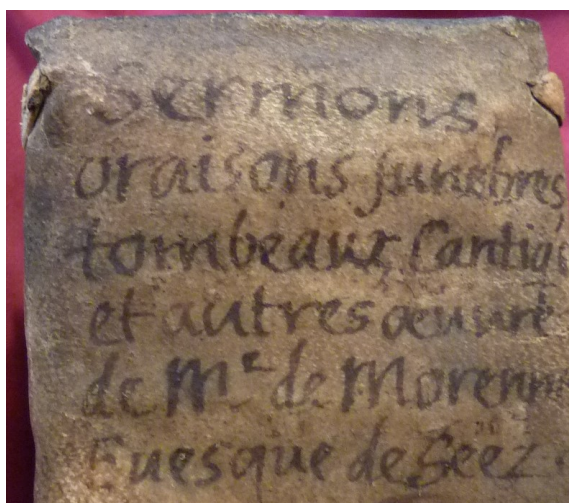 Sermons
oraisons funebres,
tombeaux Cantiq
et autres œuure
de Mr de Morenn
Euesque de Seez.